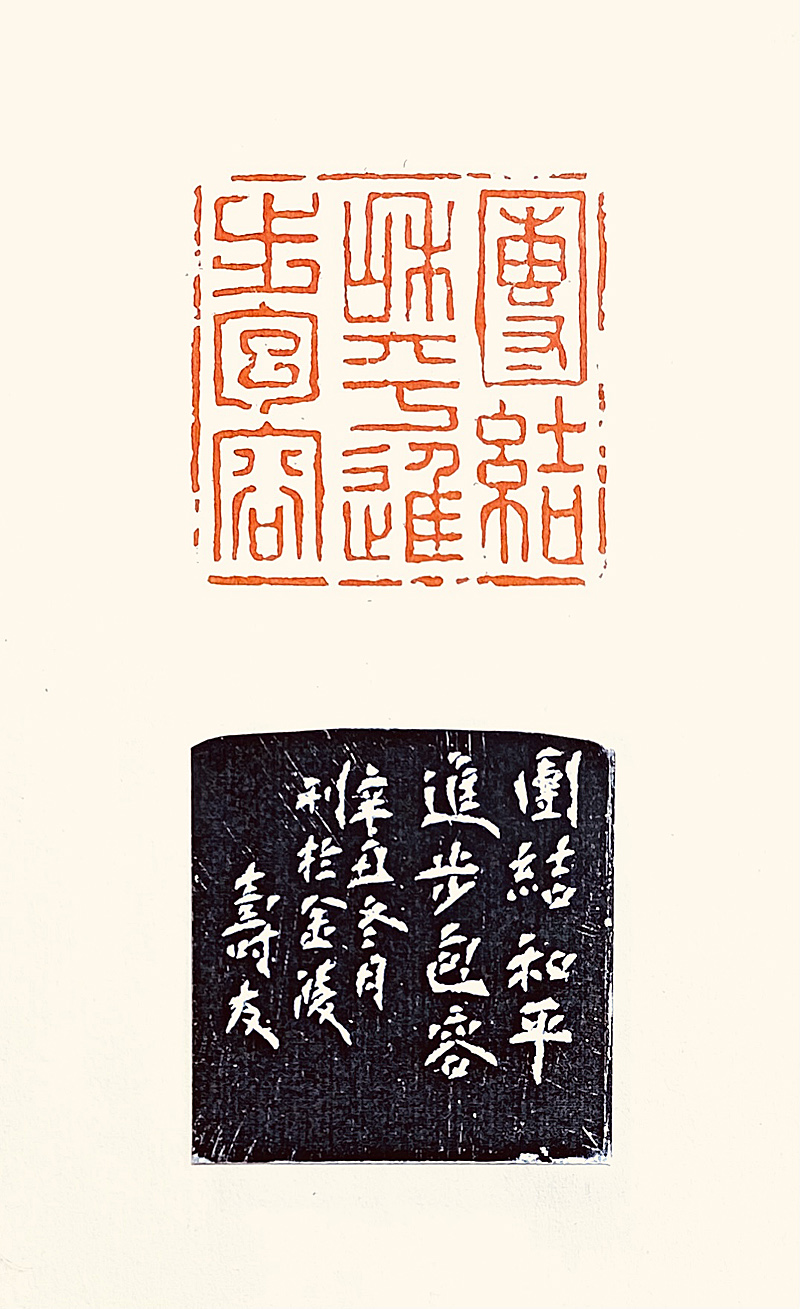 團結
和平進
步包容
團結和平
進步包容
辛丑冬月
刊於金陵
壽友